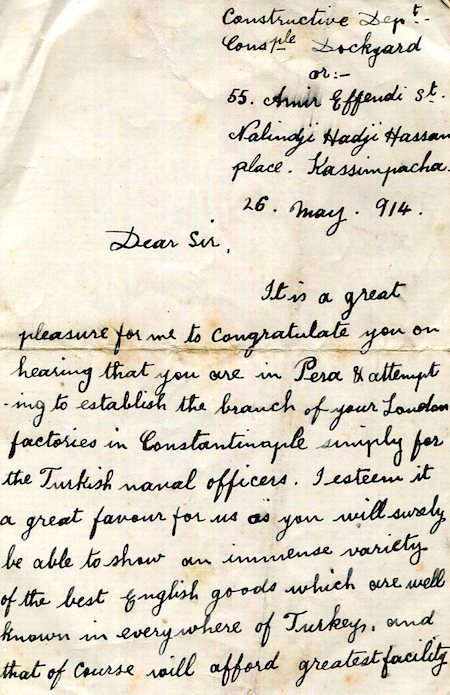 Constructive Dept.
Consple Dockyard
or:-
55. Amir Effendi St.
Nalindji Hadji Hassan
place. Kassimpacha.
26. May. 914.
Dear Sir,
It is a great
pleasure for me to congratulate you on
hearing that you are in Pera & attempt
-ing to establish the branch of your London
factories in Constantinaple simply for
the Turkish naval officers. I esteem it
a great favour for us as you will surely
be able to show an immense variety
of the best English goods which are well
known in everywhere of Turkey, and
that of course will afford greatest facility